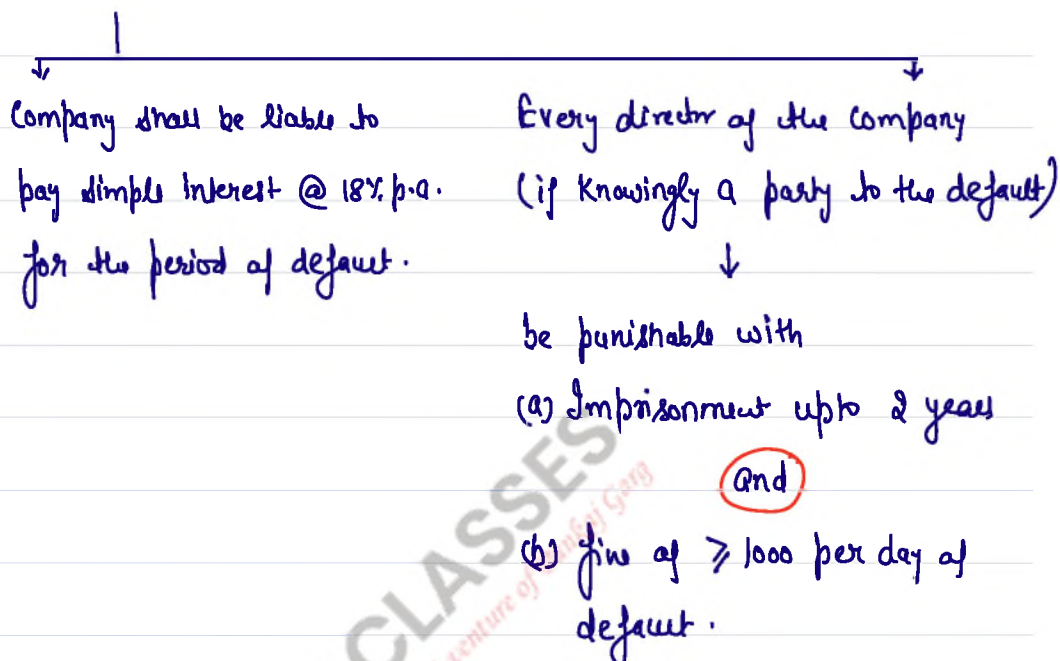 Company shall be liable to
pay simple interest @ 18% p.a.
for the period of default.
Every director of the company
(if knowingly a party to the default)
be punishable with
(a) Imprisonment upto 2 years
and
(b) fine of ≥ 1000 per day of
default.
CLASSES